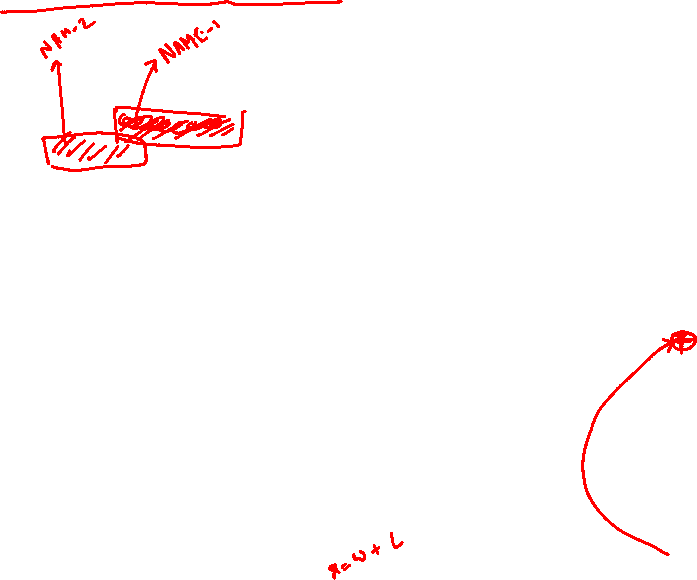 NAM-2
NAME-1
x=w+L